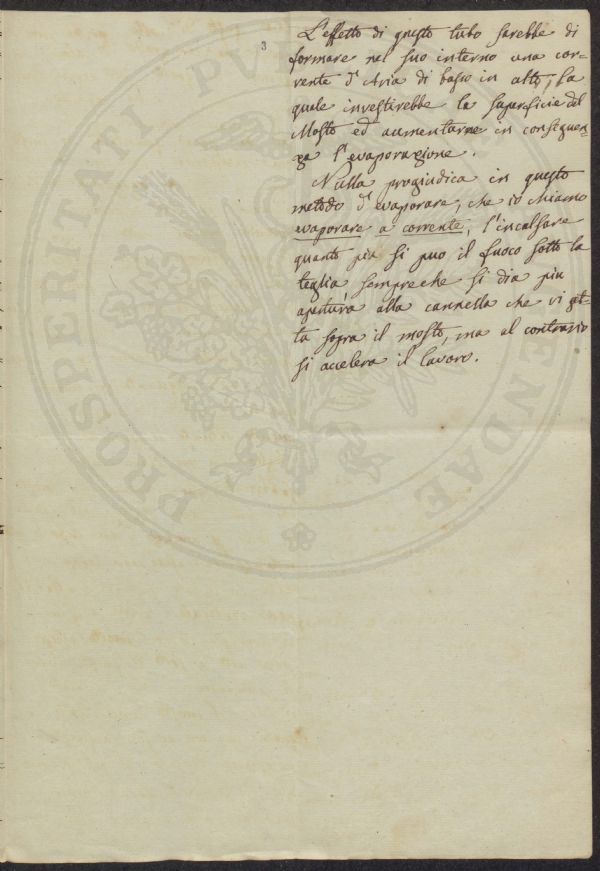 3
L'effetto di questo tubo sarebbe di
formare nel suo interno una cor=
rente d'Aria di basso in alto, la
quale investirebbe la superficie del
Mosto ed aumentarne in conseguen=
za l'evaporazione.
Nulla progiudica in questo
metodo d'evaporare, che io chiamo
evaporare a corrente, l'incalsare
quanto più si puo il fuoco sotto la
teglia sempreche si dia piu
apertura alla cannella che vi get=
ta sopra il mosto, ma al contrario
si accelera il lavoro.
PROSPERITATI PUBLICAE AUGENDAE